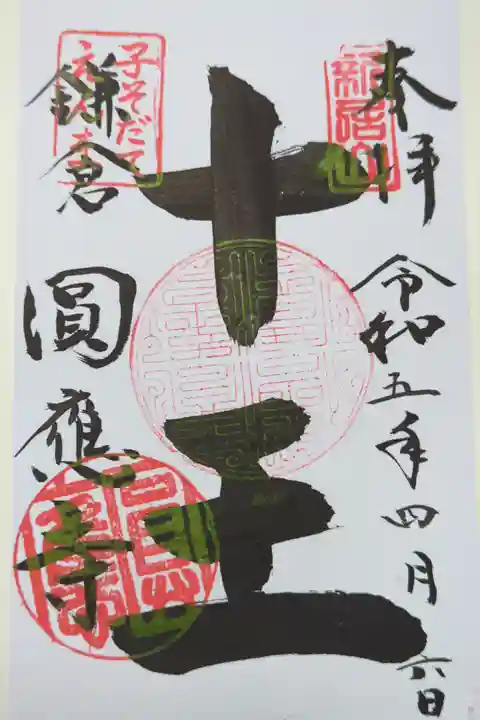 奉拝
令和五年四月六日
新居山
十王
子そだて
えんま
鎌倉
圓應寺